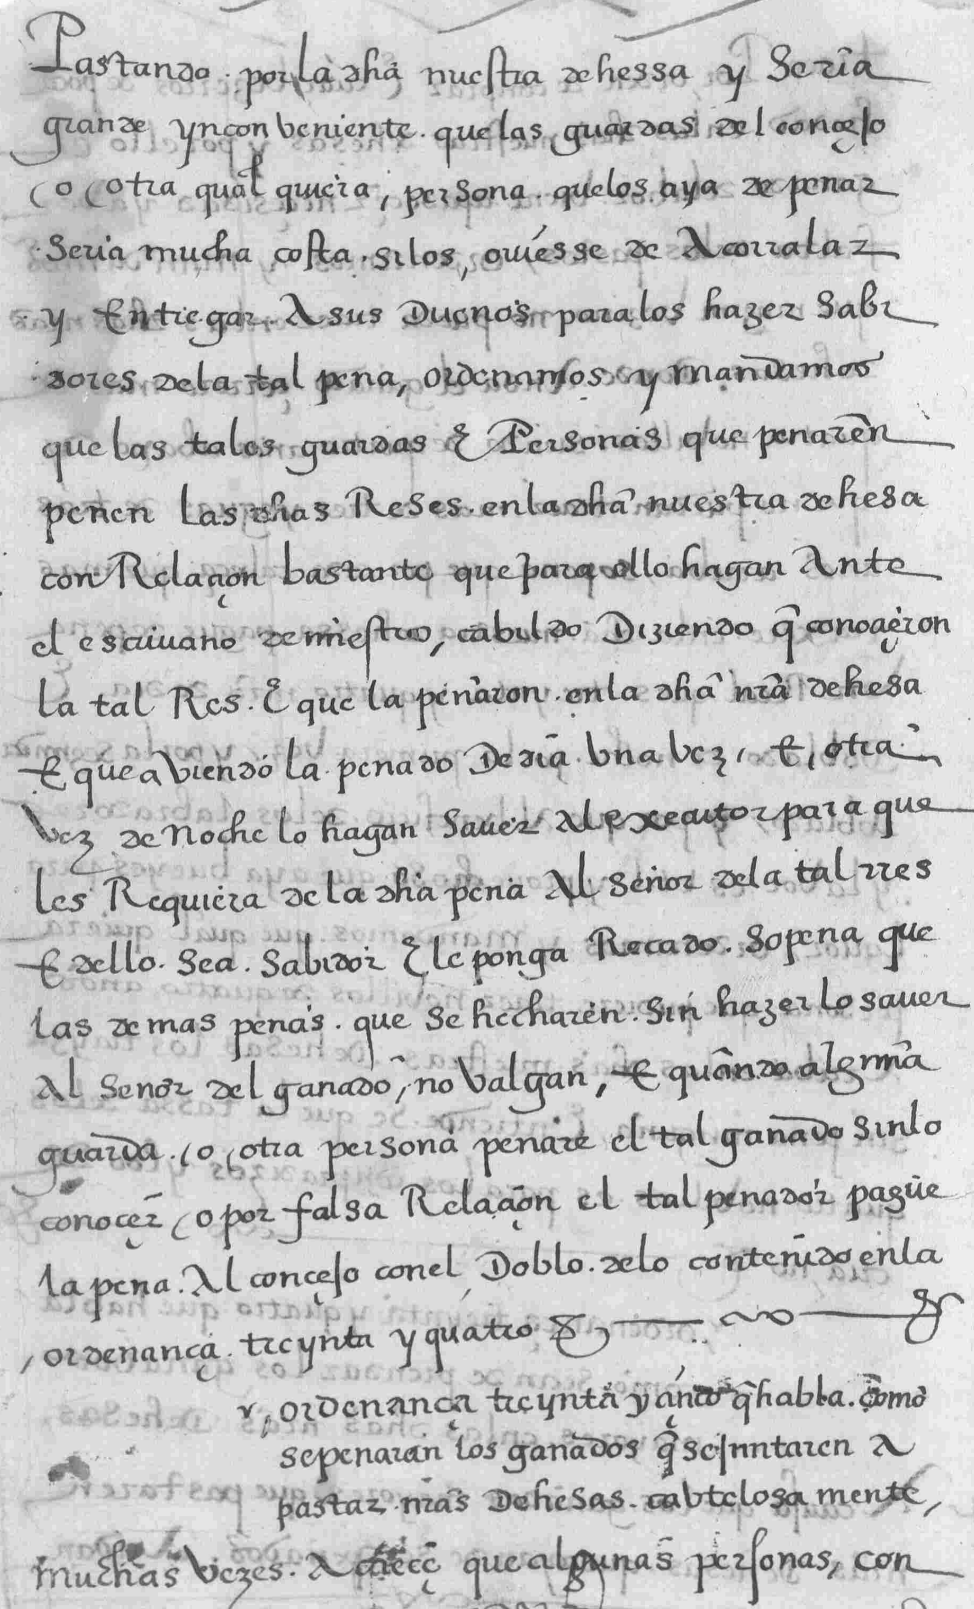 Pastando por la dha nuestra dehessa y Seria
grande ynconbeniente que las guardas del conçejo
o otra qual quiera, persona quelos aya de penar
Seria mucha costa silos, oviesse de Acorralar
y Entregar A sus Dueños para los hazer Sabi
dores dela tal pena, ordenamos y mandamos
que las tales guardas E Personas que penaren
penen las dhas Reses en la dha nuestra dehesa
con Relaçion bastante que para ello hagan Ante
el escrivano de nuestro, cabildo Diziendo q̃ conoçieron
la tal Res. E que la penaron en la dha nrã dehesa
E que aViendo la penado De dia Vna Vez, E, otra
Vez de Noche lo hagan Saver Al executor para que
les Requiera de la dha pena Al Señor dela tal rres
E dello. Sea. Sabidor E le ponga Recado. Sopena que
las demas penas. que Se hecharen. Sin hazer lo saver
Al Señor del ganado, no Valgan, E quando alguna
guarda, o otra persona penare el tal ganado Sinlo
conoçer o por falsa Relaçion el tal penador pague
la pena. Al conçejo conel Doblo. delo contenido en la
, ordenança treynta y quatro
ordenança treynta y çinco q̃ habla. como
sepenaran los ganados q̃ se Juntaren A
pastar nrãs Dehesas. cabtelosa mente,
muchas Vezes. Acaeçe que algunas personas, con